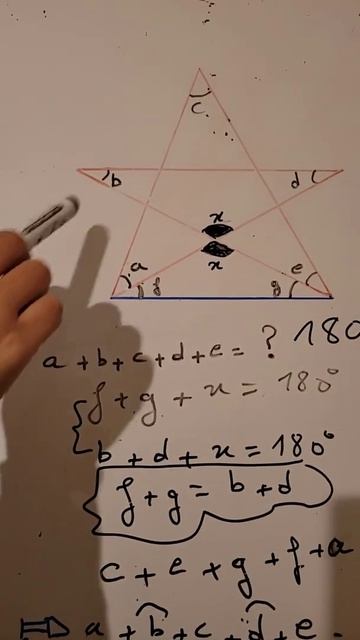 c
b
d
x
x
a
e
f
g
a + b + c + d + e = ? 180
f + g + x = 180°
b + d + x = 180°
f + g = b + d
c + e + g + f + a
⇒ a + b + c + d + e